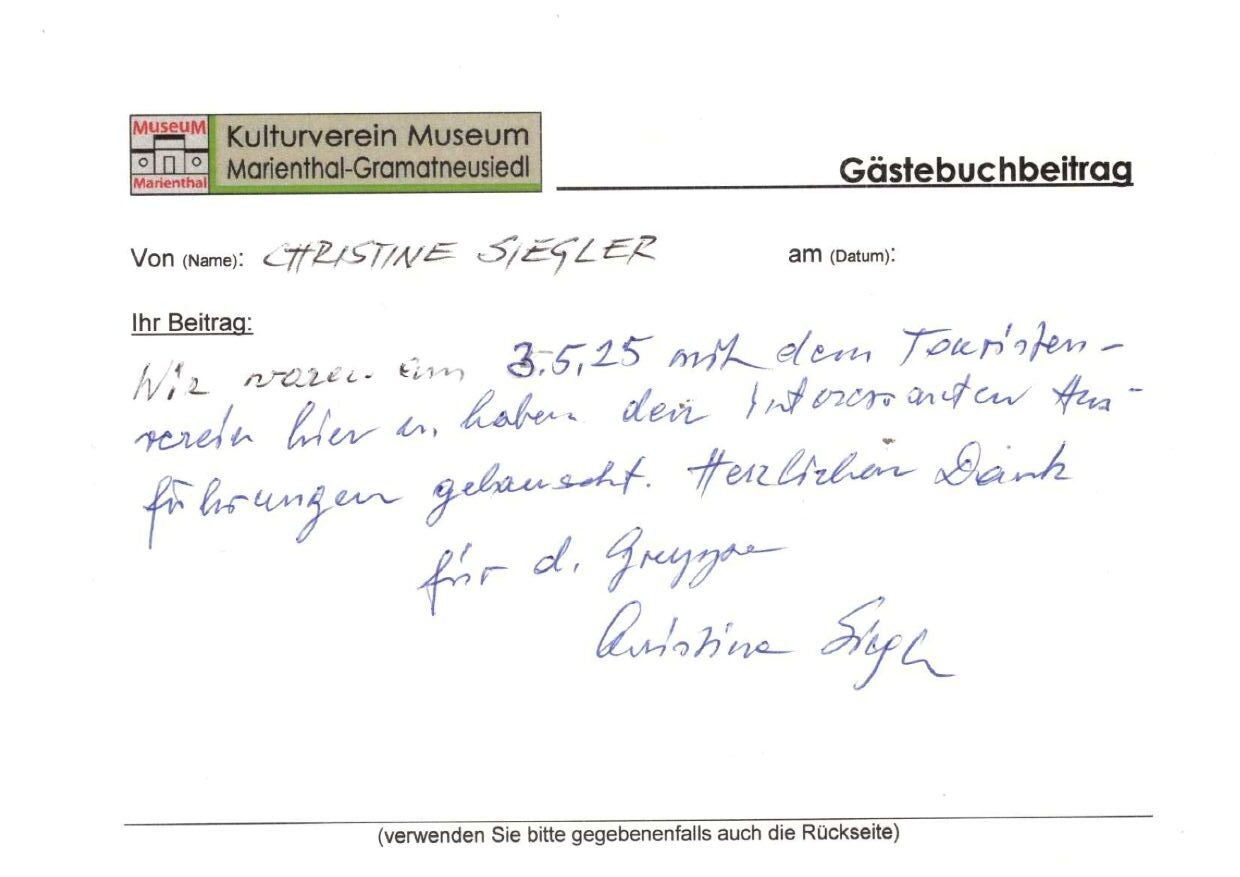 MUSEUM
Marienthal
Kulturverein Museum
Marienthal-Gramatneusiedl
Gästebuchbeitrag
Von (Name): CHRISTINE SIEGLER am (Datum):
Ihr Beitrag:
Wir waren am 3.5.25 mit dem Touristen-
verein hier u. haben den interessanten Aus-
führungen gelauscht. Herzlichen Dank
für d. Gruppe
Christine Siegler
(verwenden Sie bitte gegebenenfalls auch die Rückseite)